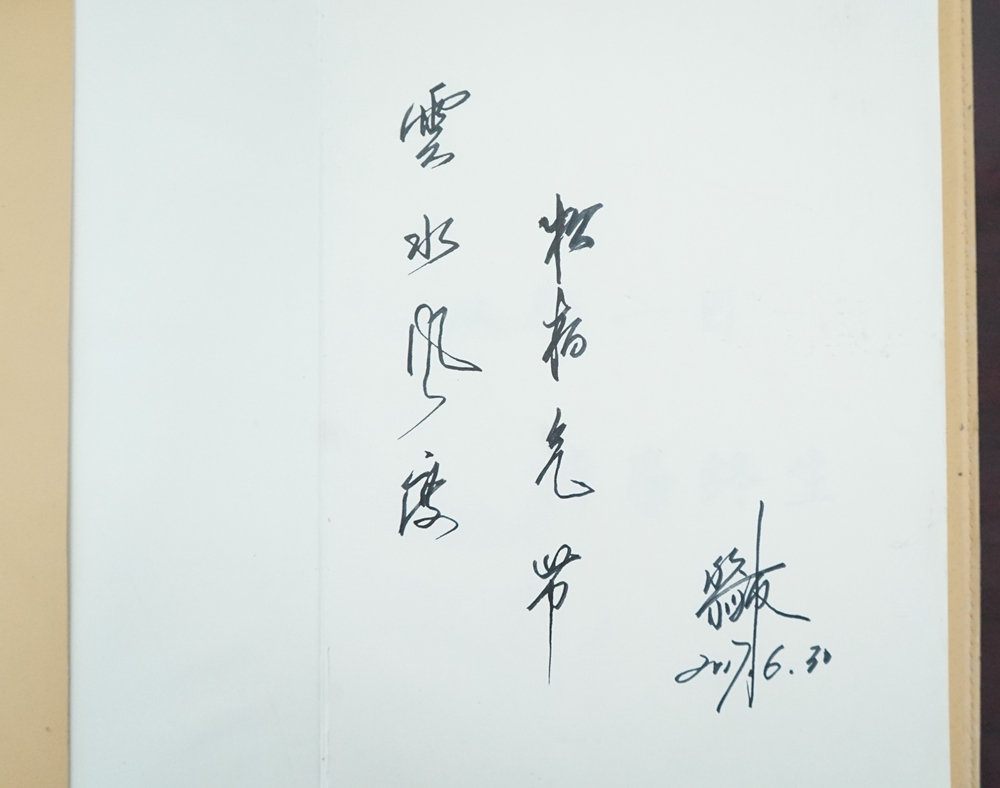 雲水风度
松栢气节
2017.6.30